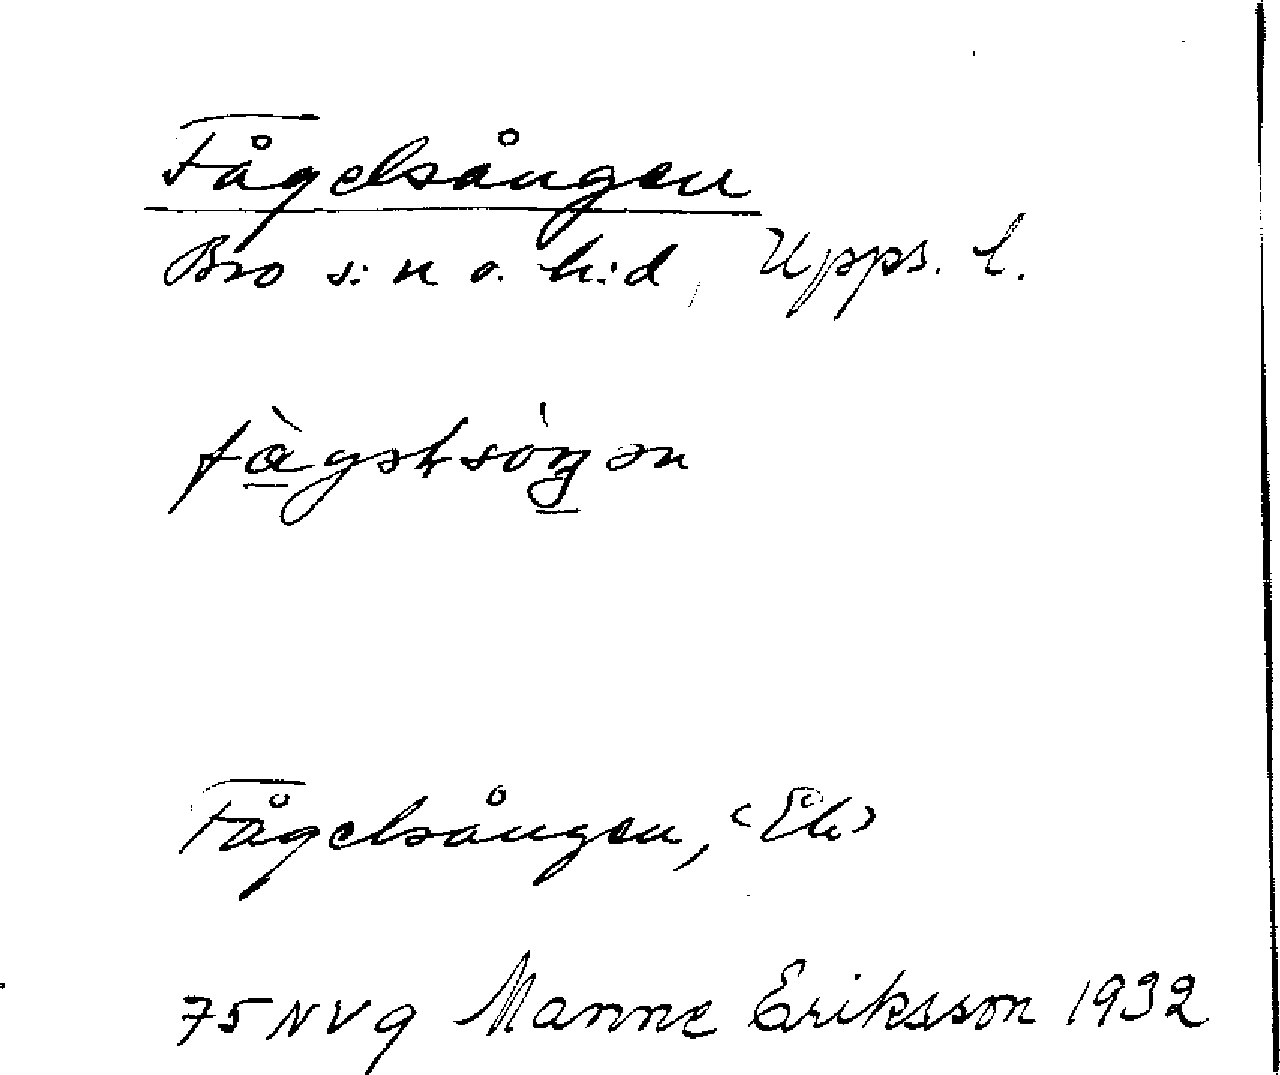 Fågelsången
Bro s:n o. h:d, Upps. l.
Fågelsången,
75 NV g Manne Eriksson 1932